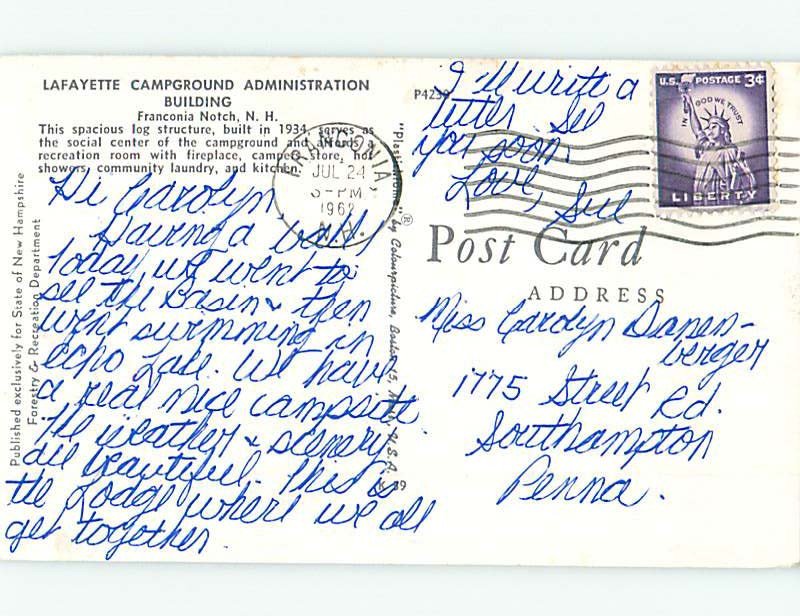 LAFAYETTE CAMPGROUND ADMINISTRATION
BUILDING
Franconia Notch, N. H.
This spacious log structure, built in 1934, serves as
the social center of the campground and affords a
recreation room with fireplace, camper store, hot
showers, community laundry, and kitchen.
Hi Carolyn
Having a ball!
Today we went to
see the Basin & then
went swimming in
echo Lake. We have
a real nice campsite
The weather & scenery
are beautiful. This is
the Lodge where we all
get together.
I'll write a
letter. See
you soon.
Love,
Sue
Published exclusively for State of New Hampshire
Forestry & Recreation Department
P4239
"Plastichrome" ® by Colourpicture, Boston 15, U.S.A.
K 39
FRANCONIA,
JUL 24
PM
1962
N.H.
U.S. POSTAGE 3¢
IN GOD WE TRUST
LIBERTY
Post Card
ADDRESS
Miss Carolyn Danen-
berger
1775 Street Rd.
Southampton
Penna.